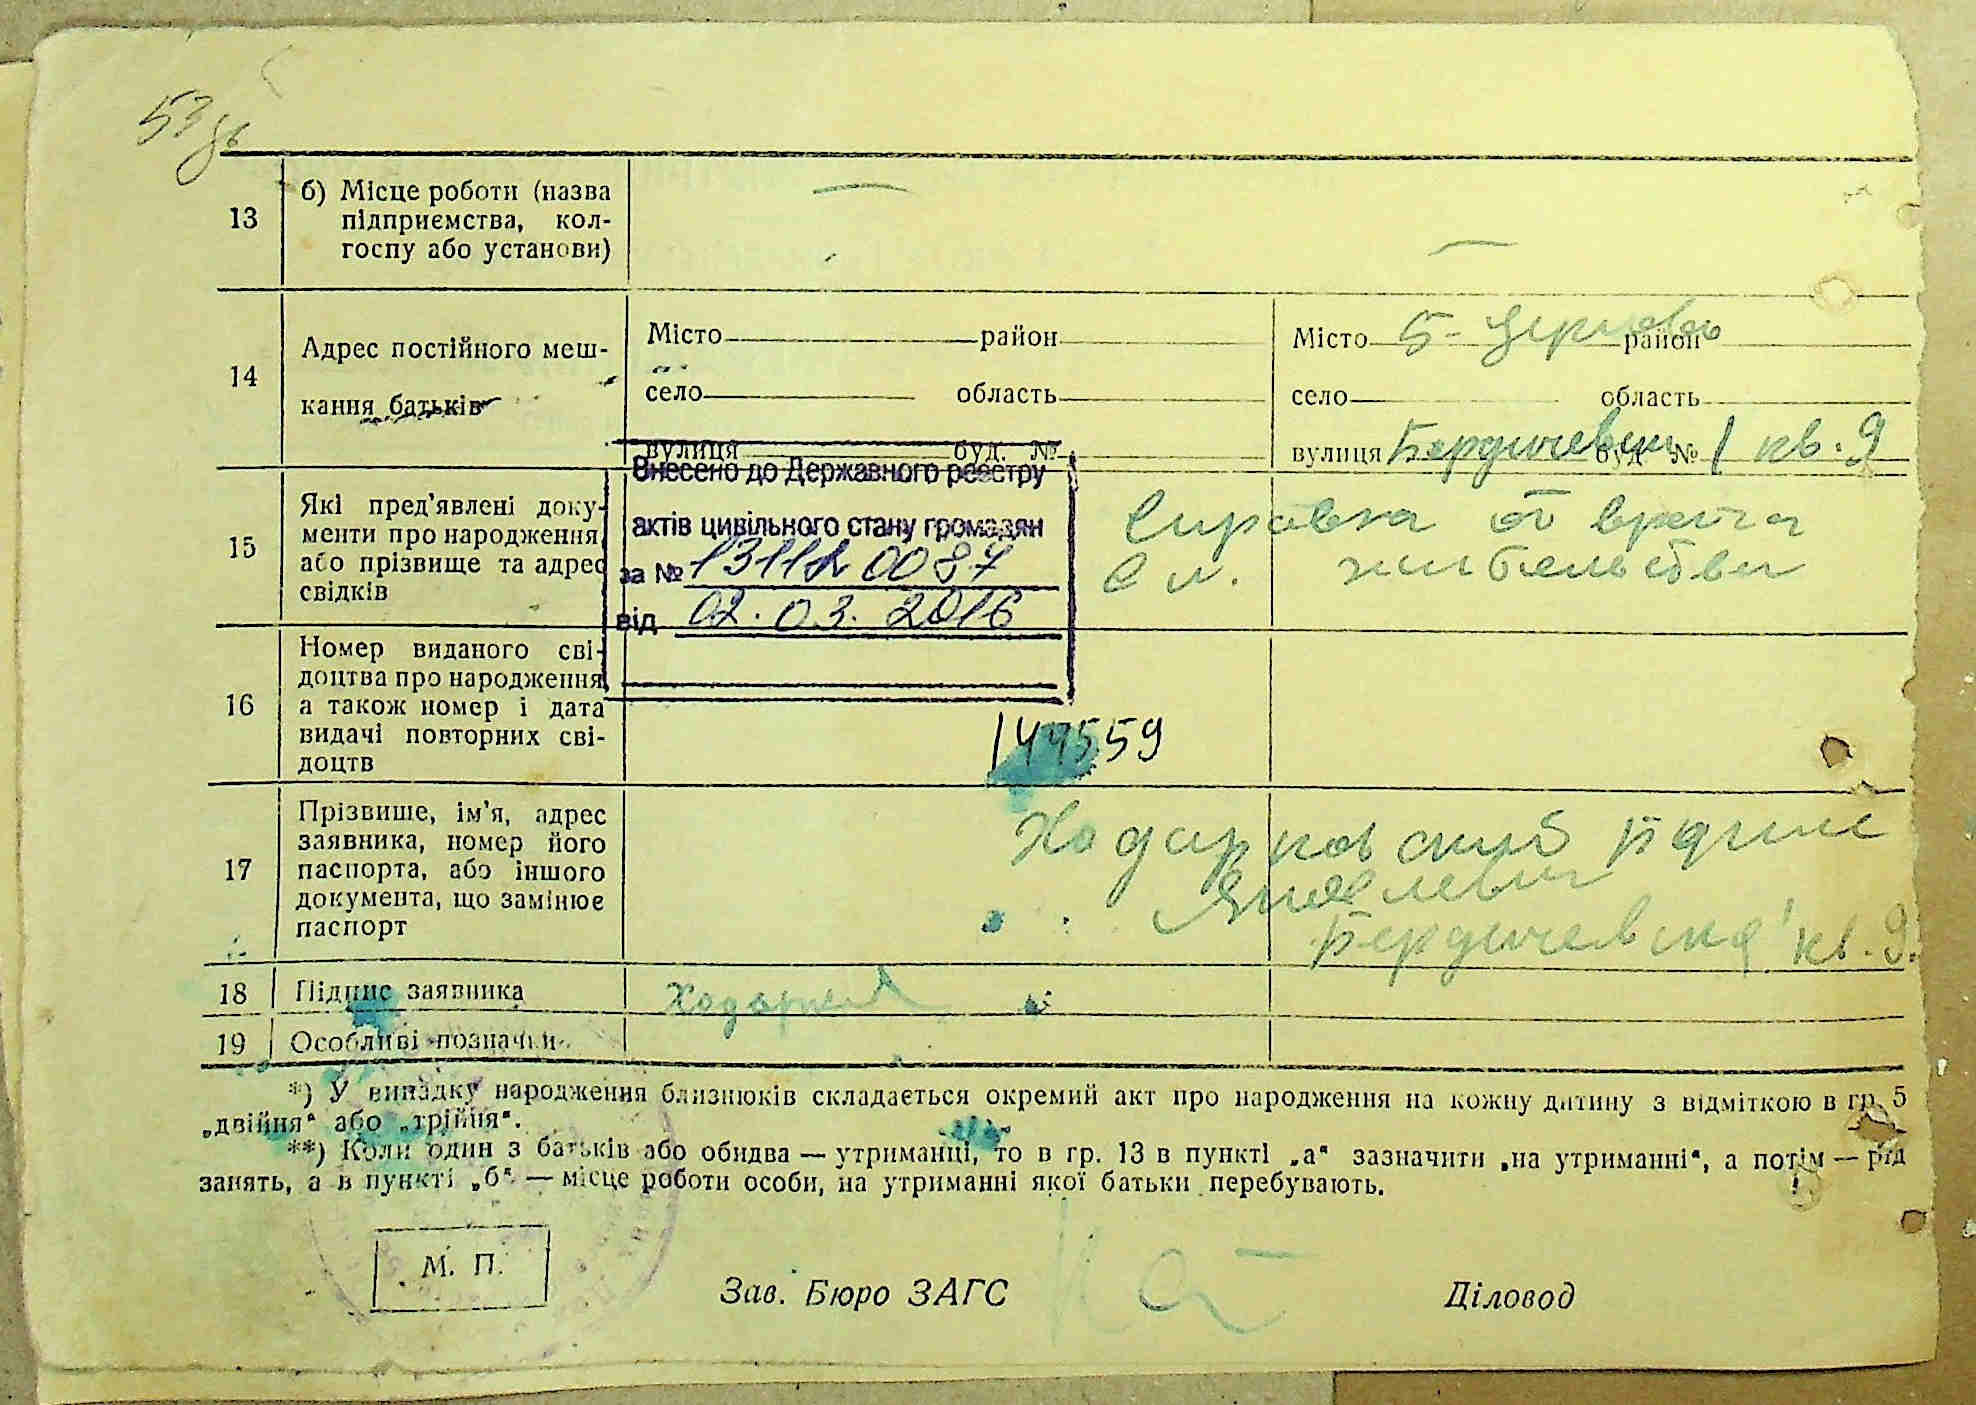 53
13
б) Місце роботи (назва
підприємства, кол-
госпу або установи)
—
—
14
Адрес постійного меш-
кання батьків
Місто район
село область
вулиця буд. №
Місто Б-Церковь район
село область
вулиця Бердичевська буд. № 1 кв. 9
15
Які пред'явлені доку-
менти про народження,
або прізвище та адрес
свідків
Внесено до Державного реєстру
актів цивільного стану громадян
за №
від 02.03.2016
Справка от врача
с м. жительства
16
Номер виданого сві-
доцтва про народження,
а також номер і дата
видачі повторних сві-
доцтв
17
Прізвище, ім'я, адрес
заявника, номер його
паспорта, або іншого
документа, що замінює
паспорт
Ходарковский
Яковлевич
Бердичевска 1 кв. 9.
18
Підпис заявника
19
Особливі позначки
*) У випадку народження близнюків складається окремий акт про народження на кожну дитину з відміткою в гр. 5
„двійня“ або „трійня“.
**) Коли один з батьків або обидва — утриманці, то в гр. 13 в пункті „а“ зазначити „на утриманні“, а потім — рід
занять, а в пункті „б“ — місце роботи особи, на утриманні якої батьки перебувають.
М. П.
Зав. Бюро ЗАГС
Діловод